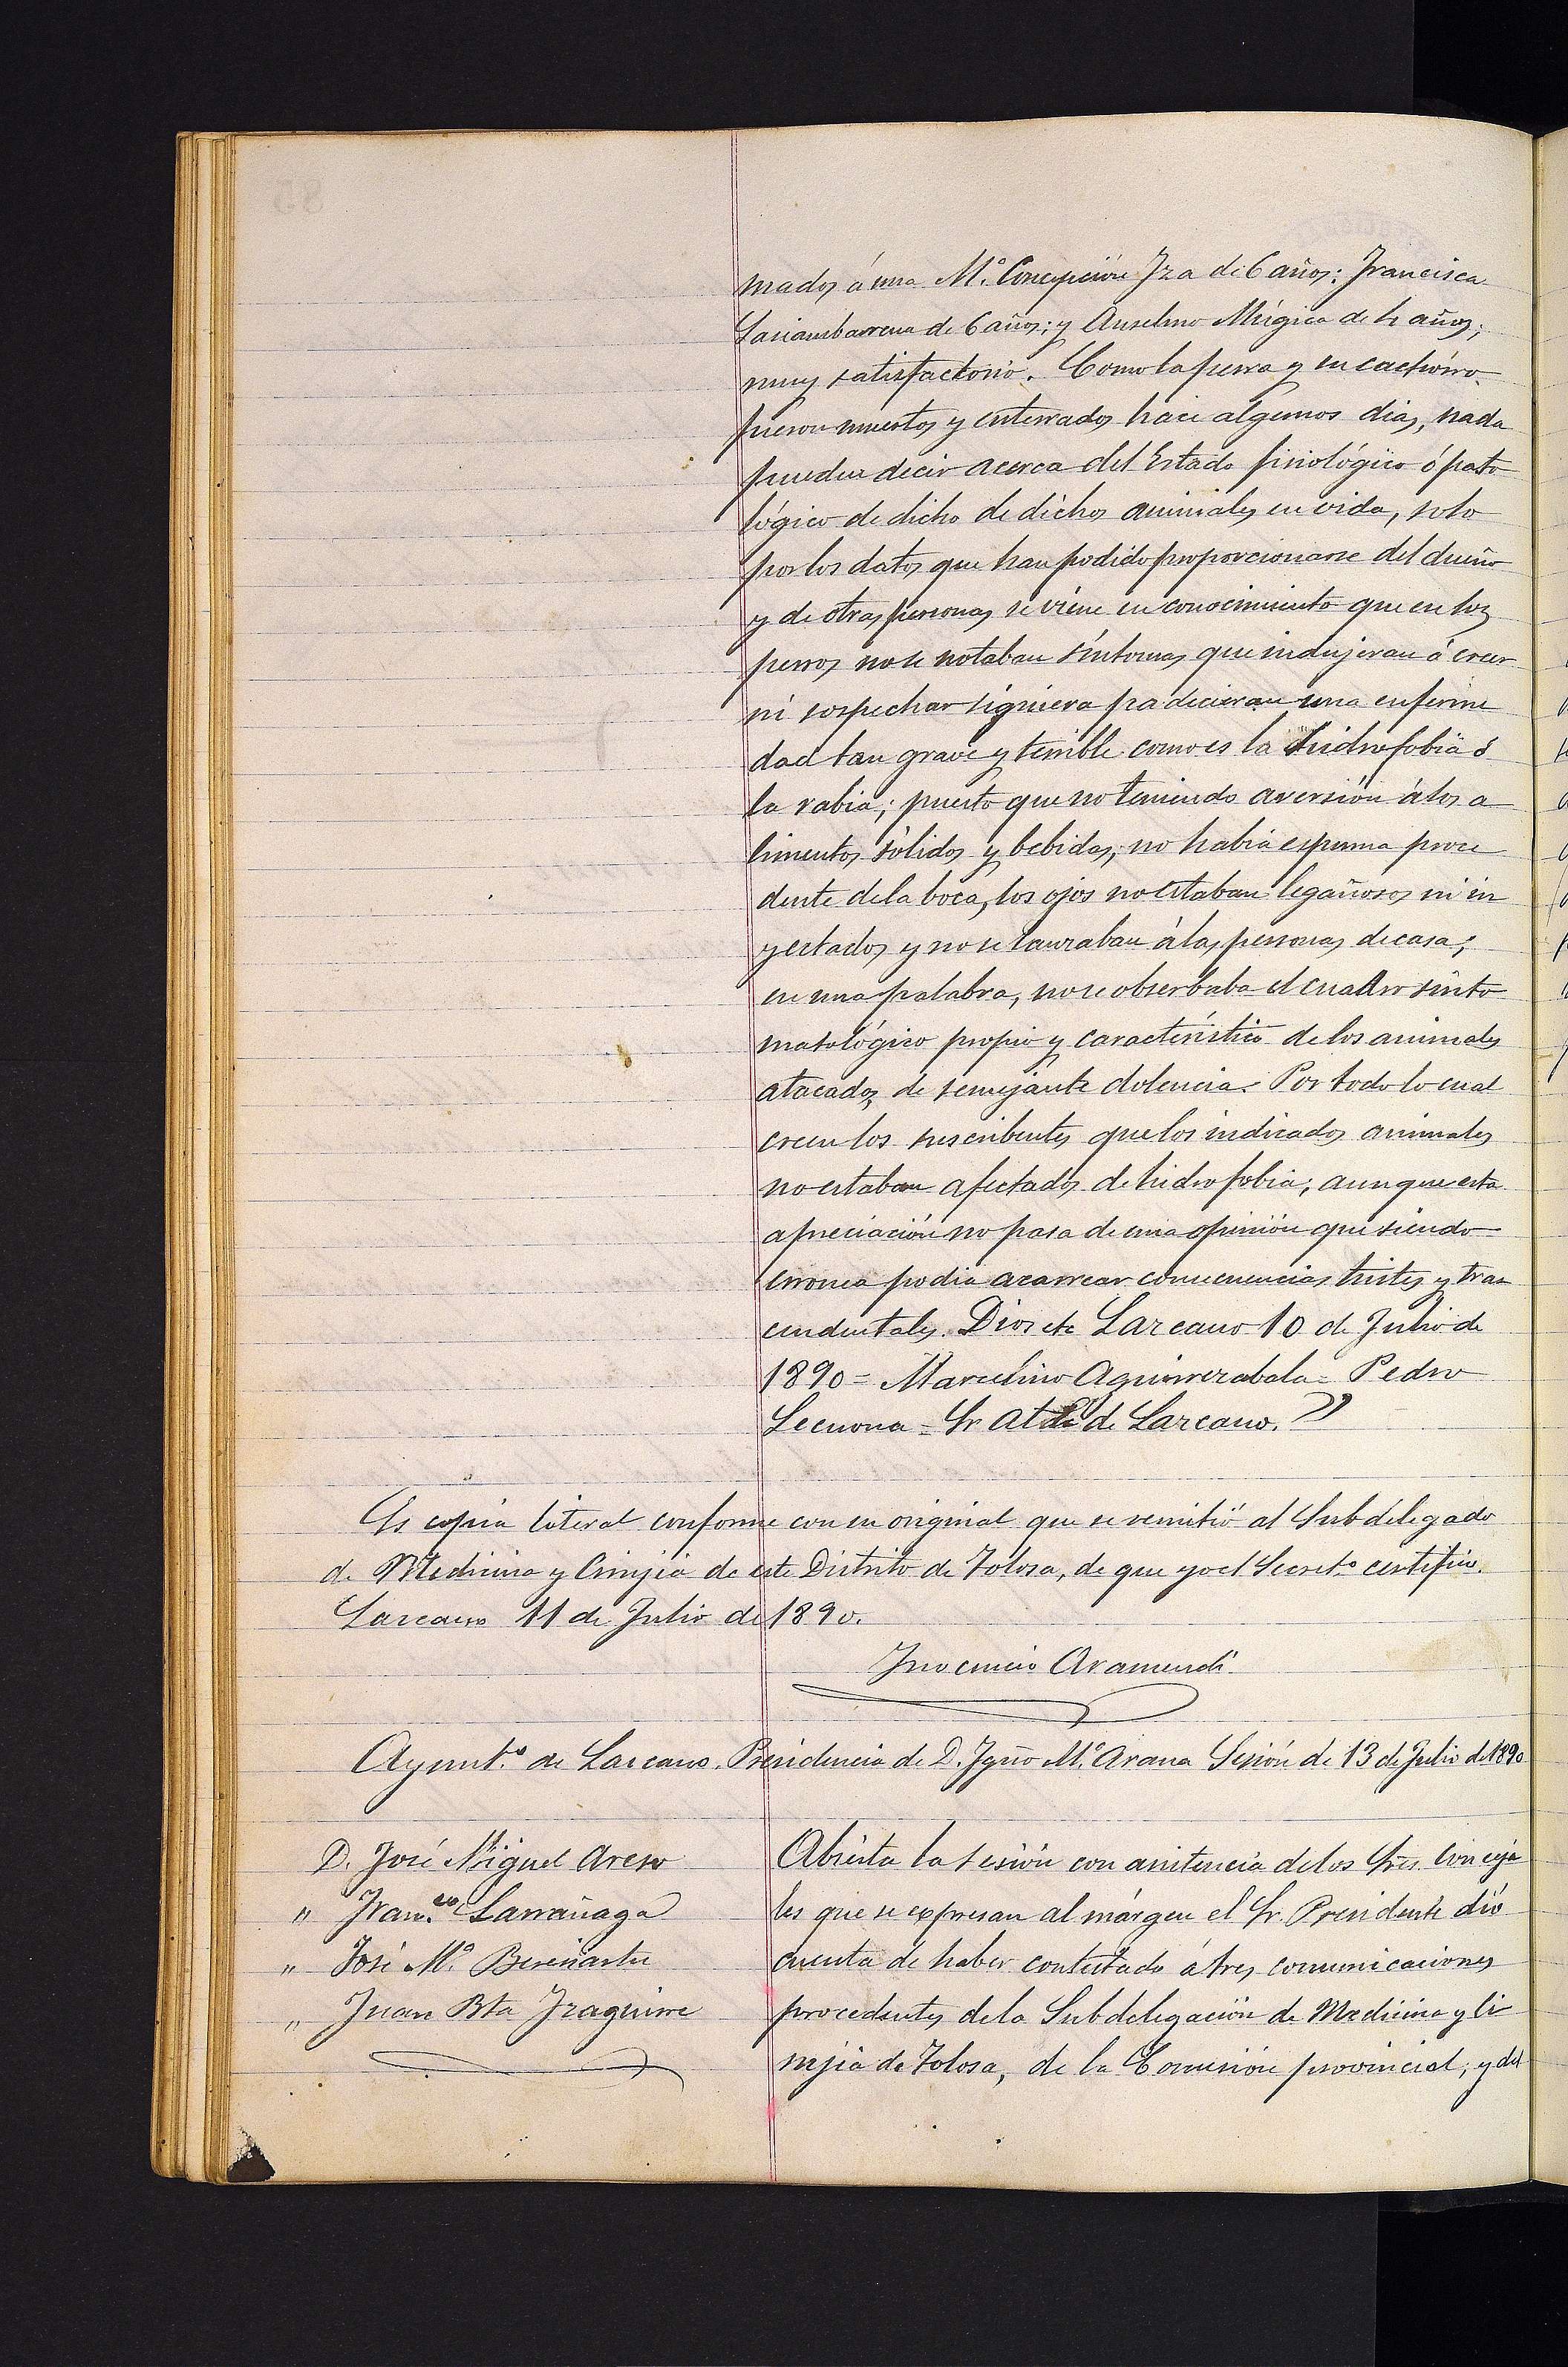 mados á una M.ª Concepción Iza de 6 años: Francisca
Lasiambarrena de 6 años; y Anselmo Múgica de 4 años;
muy satisfactorio. Como la perra y su cachórro
fueron muertos y enterrados hace algunos dias, nada
pueden decir acerca del Estado fisiológico ó pato
lógico de dicho de dichos animales en vida, solo
por los datos que han podido proporcionarse del dueño
y de otras personas se viene en conocimiento que en los
perros no se notaban síntomas que indujeran á creer
ni sospechar siquiera padecieran una enferme
dad tan grave y temible como es la hidrofobia ó
la rabia; puesto que no teniendo aversión á los a
limentos sólidos y bebidas, no habia espuma proce
dente de la boca, los ojos no estaban legañosos ni in
yectados y no se lanzaban á las personas de casa;
en una palabra, no se obserbaba el cuadro sinto
matológico propio y característico de los animales
atacados de semejante dolencia. Por todo lo cual
creen los suscribentes que los indicados animales
no estaban afectados de hidrofobia; aunque esta
apreciación no pasa de una opinión que siendo
erronea podia acarrear consecuencias tristes y tras
cendentales. Dios etc Lazcano 10 de Julio de
1890 = Marcelino Aguirrezabala = Pedro
Lecuona = Sr Alcde de Lazcano."
Es copia literal conforme con su original que se remitió al Subdelegado
de Medicina y Cirujia de este Distrito de Tolosa, de que yo el Secret.º certifico.
Lazcano 11 de Julio de 1890.
Inocencio Aramendi
Ayunt.º de Lazcano. Presidencia de D. Ygño M.ª Arana Sesión de 13 de Julio de 1890
D. José Miguel Areso
" Fran.co Larrañaga
" José M.ª Bereciartu
" Juan Bta Izaguirre
Abierta la sesión con asistencia de los Sres. Conceja
les que se expresan al márgen el Sr. Presidente dió
cuenta de haber contestado á tres comunicaciones
procedentes de la Subdelegación de Medicina y Ci
rujia de Tolosa, de la Comisión provincial, y del